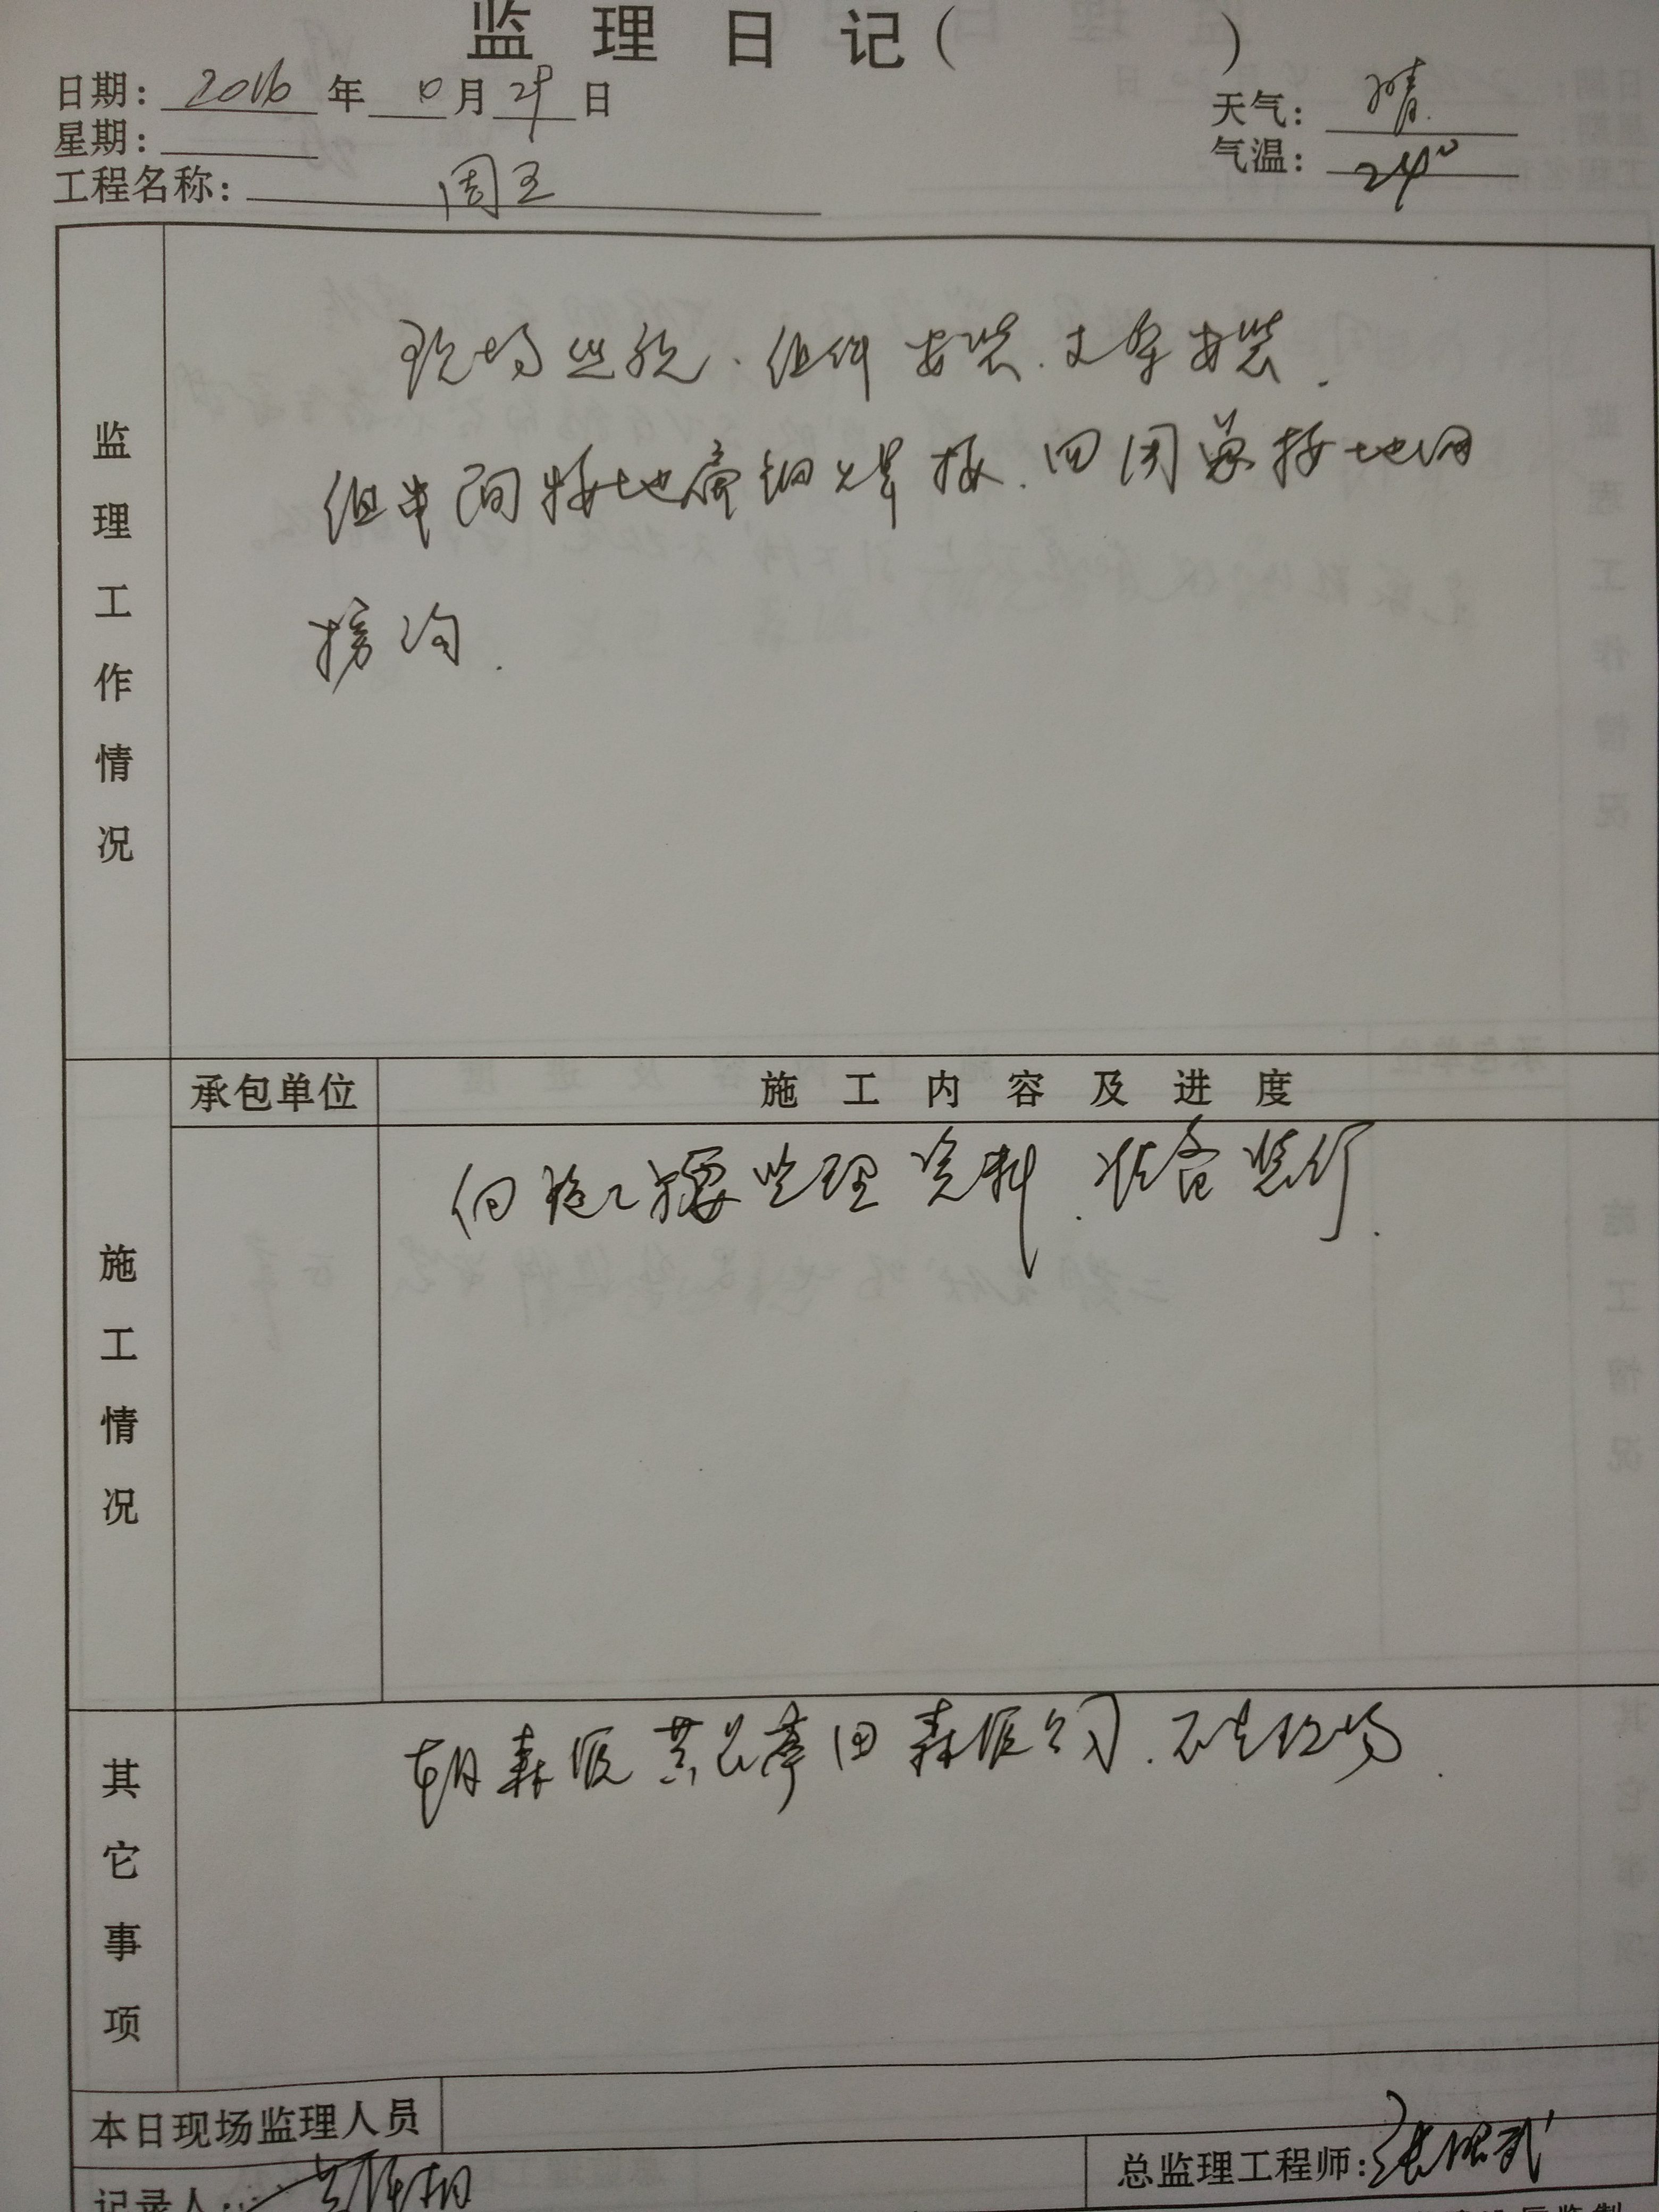 监理日记( )
日期: 2016 年 10 月 29 日
天气: 晴
星期:
气温: 24°
工程名称: 周王
监理工作情况
现场巡视、组件安装、支架安装.
组串间接地扁钢焊接、四周总接地网
挖沟.
承包单位
施工内容及进度
施工情况
向施工要监理资料、准备装订.
其它事项
朝森源黄 回森源公司、不在现场.
本日现场监理人员
总监理工程师:
记录人: